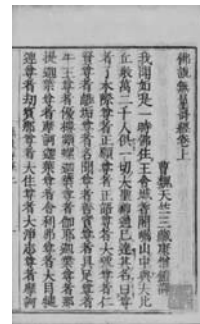 佛説無量壽經卷上
曹魏天竺三藏康僧鎧譯
我聞如是一時佛住王舍城耆闍崛山中與大比
丘衆萬二千人俱一切大聖神通已達其名曰尊
者了本際尊者正願尊者正語尊者大號尊者仁
賢尊者離垢尊者名聞尊者善實尊者具足尊者
牛王尊者優樓頻蠡迦葉尊者伽耶迦葉尊者那
提迦葉尊者摩訶迦葉尊者舍利弗尊者大目揵
連尊者劫賓那尊者大住尊者大淨志尊者摩訶